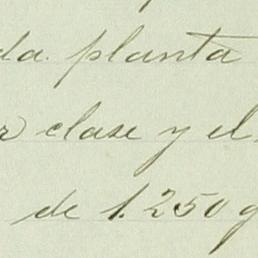 da. planta
r clase y el
de 1.250 g